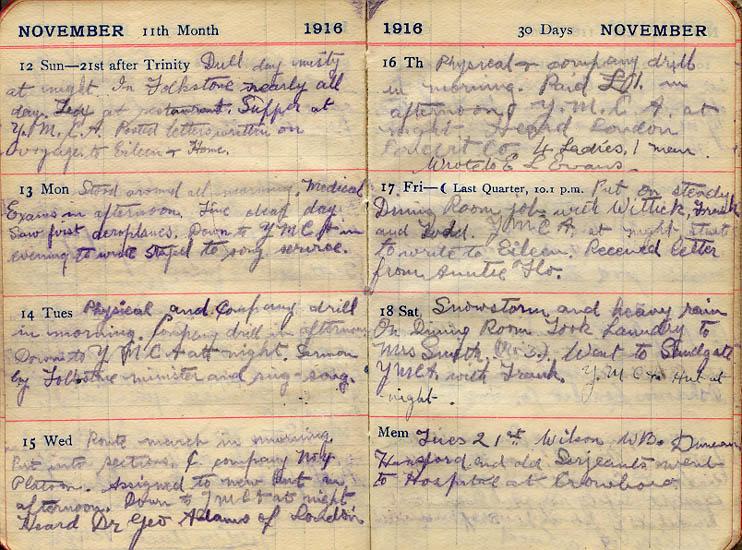 NOVEMBER 11th Month 1916
12 Sun—21st after Trinity Dull day misty
at night. In Folkstone nearly all
day. Tea at restaurant. Supper at
Y.M.C.A. Posted letters written on
voyage, to Eileen & Home.
13 Mon Stood around all morning. Medical
Exams in afternoon. Fine clear day
Saw first aeroplanes. Down to YMCA in
evening to write stayed to song service.
14 Tues Physical and Company drill
in morning. Company drill in afternoon
Down to YMCA at night. Sermon
by Folkstone minister and sing-song.
15 Wed Route march in morning.
Put into sections. C company No 4
Platoon. Assigned to new hut in
afternoon. Down to YMCA at night
Heard Dr Geo Adams of London
1916 30 Days NOVEMBER
16 Th Physical & company drill
in morning. Paid in
afternoon Y.M.C.A. at
night. Heard London
Concert Co. 4 Ladies, 1 man.
Wrote to E L Evans.
17 Fri—( Last Quarter, 10.1 p.m. Put on steady
Dining Room job with Wittick, Frank
and Todd. YMCA at night start
to write to Eileen. Received letter
from Auntie Flo.
18 Sat Snowstorm and heavy rain
On Dining Room Took Laundry to
Mrs Smith, Went to Sandgate
YMCA with Frank. Y.M.C.A. Hut at
night.
Mem Tues 21st Wilson WB. Duncan
Hansford and old Serjeants went
to Hospital at Crowboro